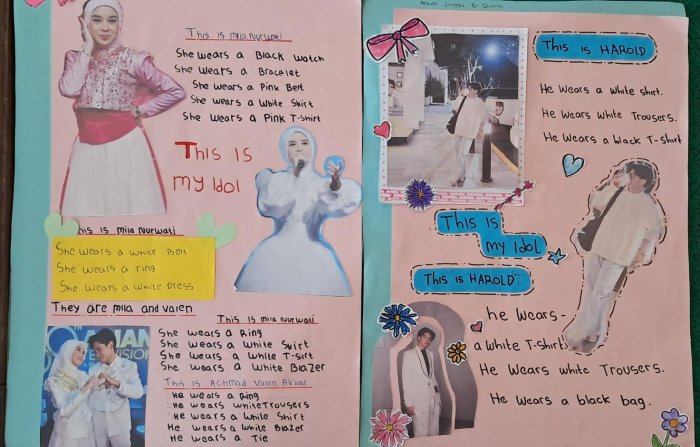 This is mila nurwati
She wears a Black watch
She wears a Bracelet
She wears a Pink Belt
She wears a White Skirt
She wears a Pink T-shirt
This is
my Idol
This is mila nurwati
She wears a white Belt
She wears a ring
She wears a white Dress
They are mila and valen
This is mila nurwati
She wears a Ring
She wears a white Skirt
She wears a white T-Sirt
She wears a white Blazer
This is Achmad Valen Akbar
He wears a Ring
He wears white Trousers
He wears a white Shirt
He wears a white Blazer
He wears a Tie
Nowa Jingga Br
This is HAROLD
He wears a white shirt.
He wears white Trousers.
He wears a black T-Shirt
This is
my Idol
This is HAROLD
he wears-
a white T-Shirt.
He wears white Trousers.
He wears a black bag.